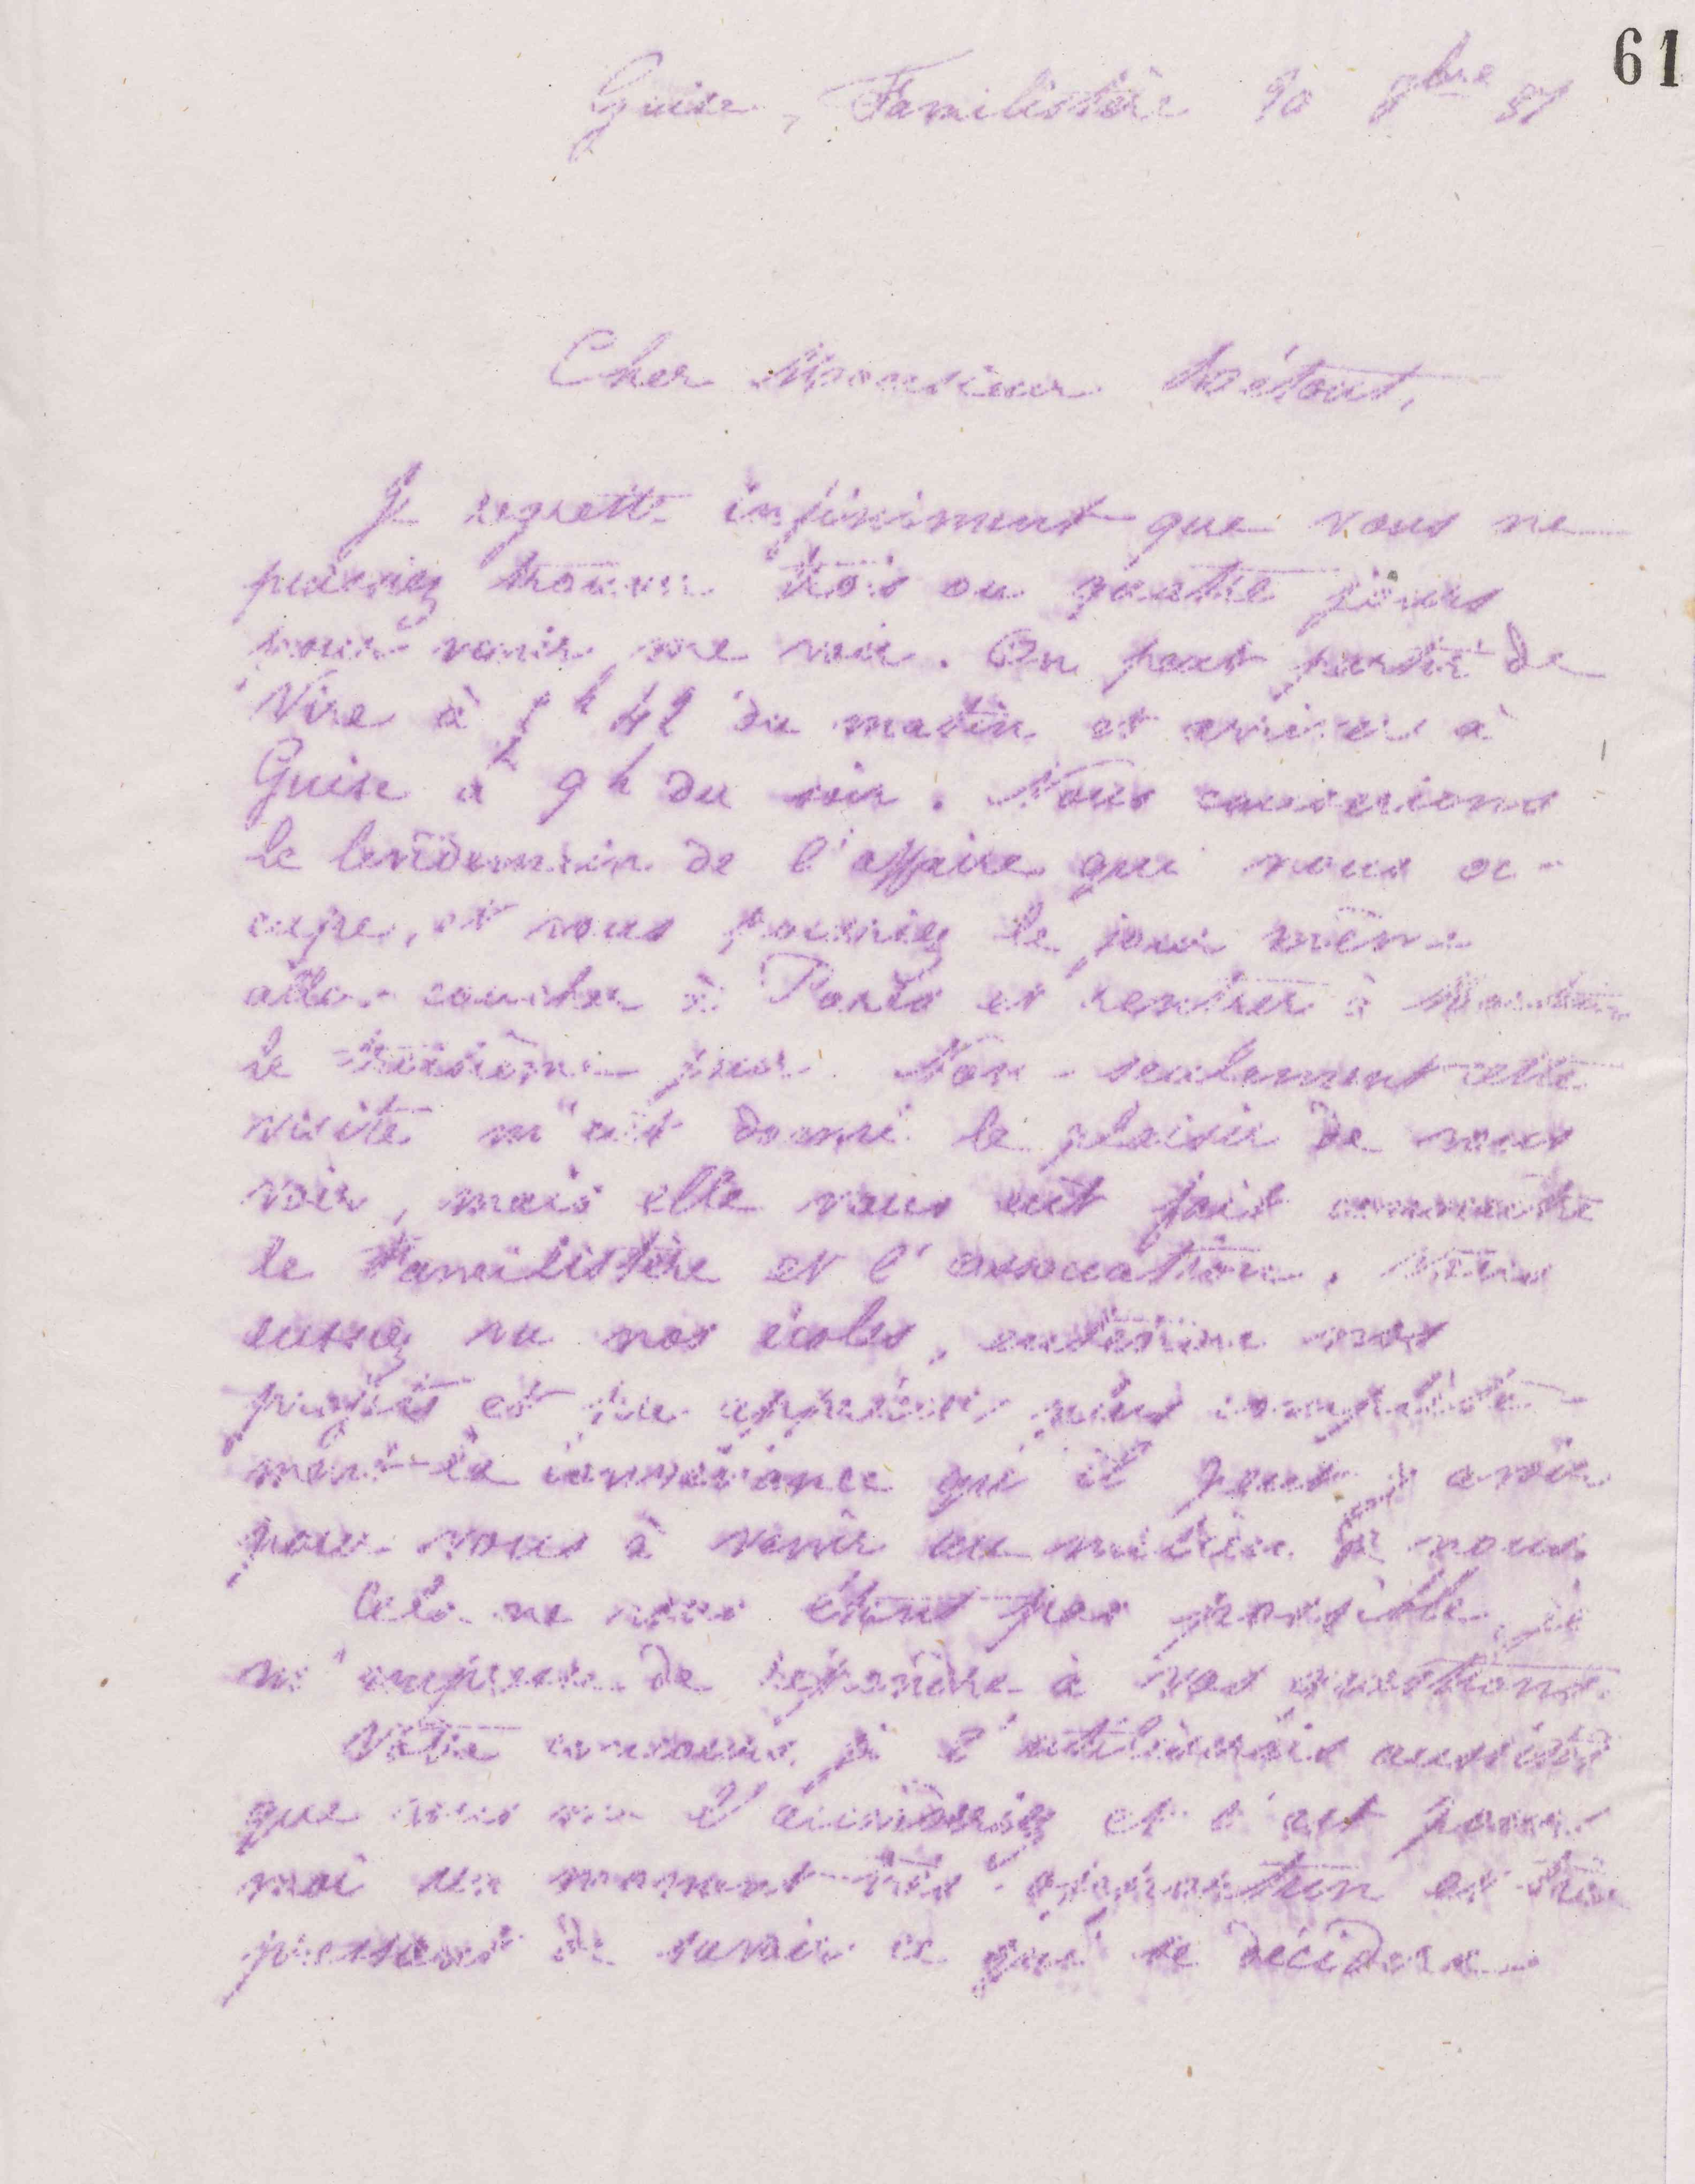 61
Guise, Familistère 8bre 87
Cher Monsieur Métout,
Je regrette infiniment que vous ne
puissiez trouver trois ou quatre jours
pour venir me voir. On peut partir de
Vire à 5h 42 du matin et arriver à
Guise à 9h du soir. Nous causerions
le lendemain de l'affaire qui nous oc-
cupe, et vous pourriez le jour même
aller coucher à Paris et rentrer à Mortain
le troisième jour. Non-seulement cette
visite m'eût donné le plaisir de vous
voir, mais elle vous eût fait connaître
le Familistère et l'association. Vous
eussiez vu nos écoles, entendu mes
projets et pu apprécier plus complète-
ment la convenance qu'il peut y avoir
pour vous à venir au milieu de nous.
Cela ne vous étant pas possible, je
m'empresse de répondre à vos questions.
Votre concours, je l'utiliserais aussitôt
que vous me l'accorderiez et c'est pour
moi un moment très opportun et très
pressant de savoir ce qui se décidera